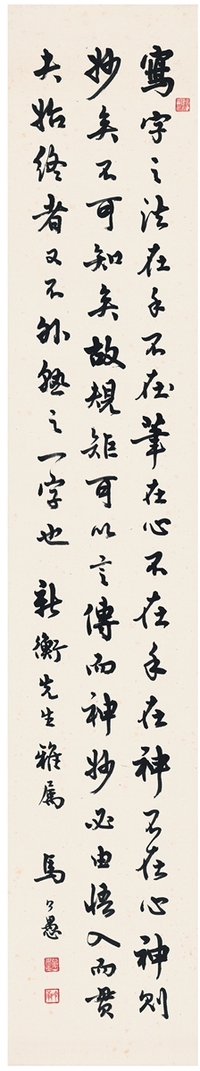 寫字之法在手不在筆在心不在手在神不在心神則
妙矣不可知矣故規矩可以言傳而神妙必由悟入而貫
夫始終者又不外熟之一字也
新衡先生雅屬
馬公愚